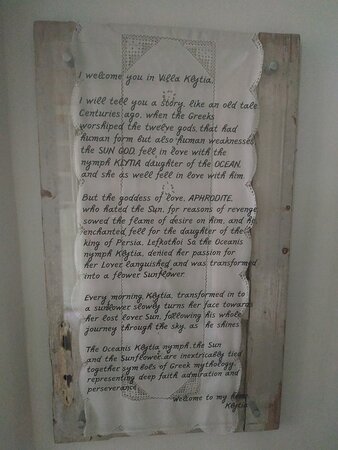 I welcome you in Villa Klytia.
I will tell you a story, like an old tale.
Centuries ago, when the Greeks
worshiped the twelve gods, that had
human form but also human weaknesses,
the SUN GOD, fell in love with the
nymph KLYTIA daughter of the OCEAN,
and she as well fell in love with him.
But the goddess of love, APHRODITE,
who hated the Sun, for reasons of revenge,
sowed the flame of desire on him, and he
enchanted fell for the daughter of the
king of Persia, Lefkothoi. So the Oceanis
nymph Klytia, denied her passion for
her Lover, languished and was transformed
into a flower, Sunflower.
Every morning Klytia, transformed in to
a sunflower slowly turns her face towards
her lost lover Sun, following his whole
journey through the sky, as he shines
The Oceanis Klytia nymph, the Sun
and the Sunflower, are inextricably tied
together symbols of Greek mythology,
representing deep faith admiration and
perseverance.
Welcome to my home
Klytia